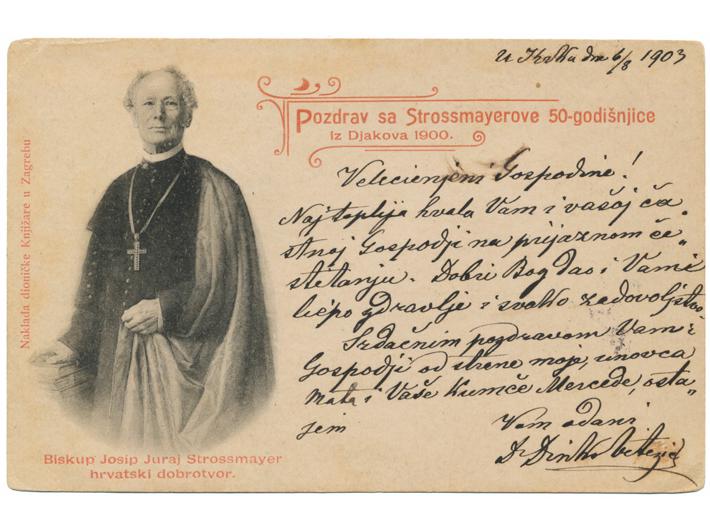 U Krku dne 6/8 1903
Pozdrav sa Strossmayerove 50-godišnjice
iz Djakova 1900.
Velecienjeni Gospodine!
Najtoplija hvala Vam i vašoj ča
stnoj Gospodji na prijaznom če„
stitanju. Dobri Bog dao i Vami
liepo zdravlje i svako zadovoljstvo.
Srdačnim pozdravom Vam i
Gospodji od strane moje, sinovca
Mata i Vaše Kumče Mercede, osta„
jem
Vam odani
Dr Dinko Vitezić
Naklada dioničke Knjižare u Zagrebu
Biskup Josip Juraj Strossmayer
hrvatski dobrotvor.